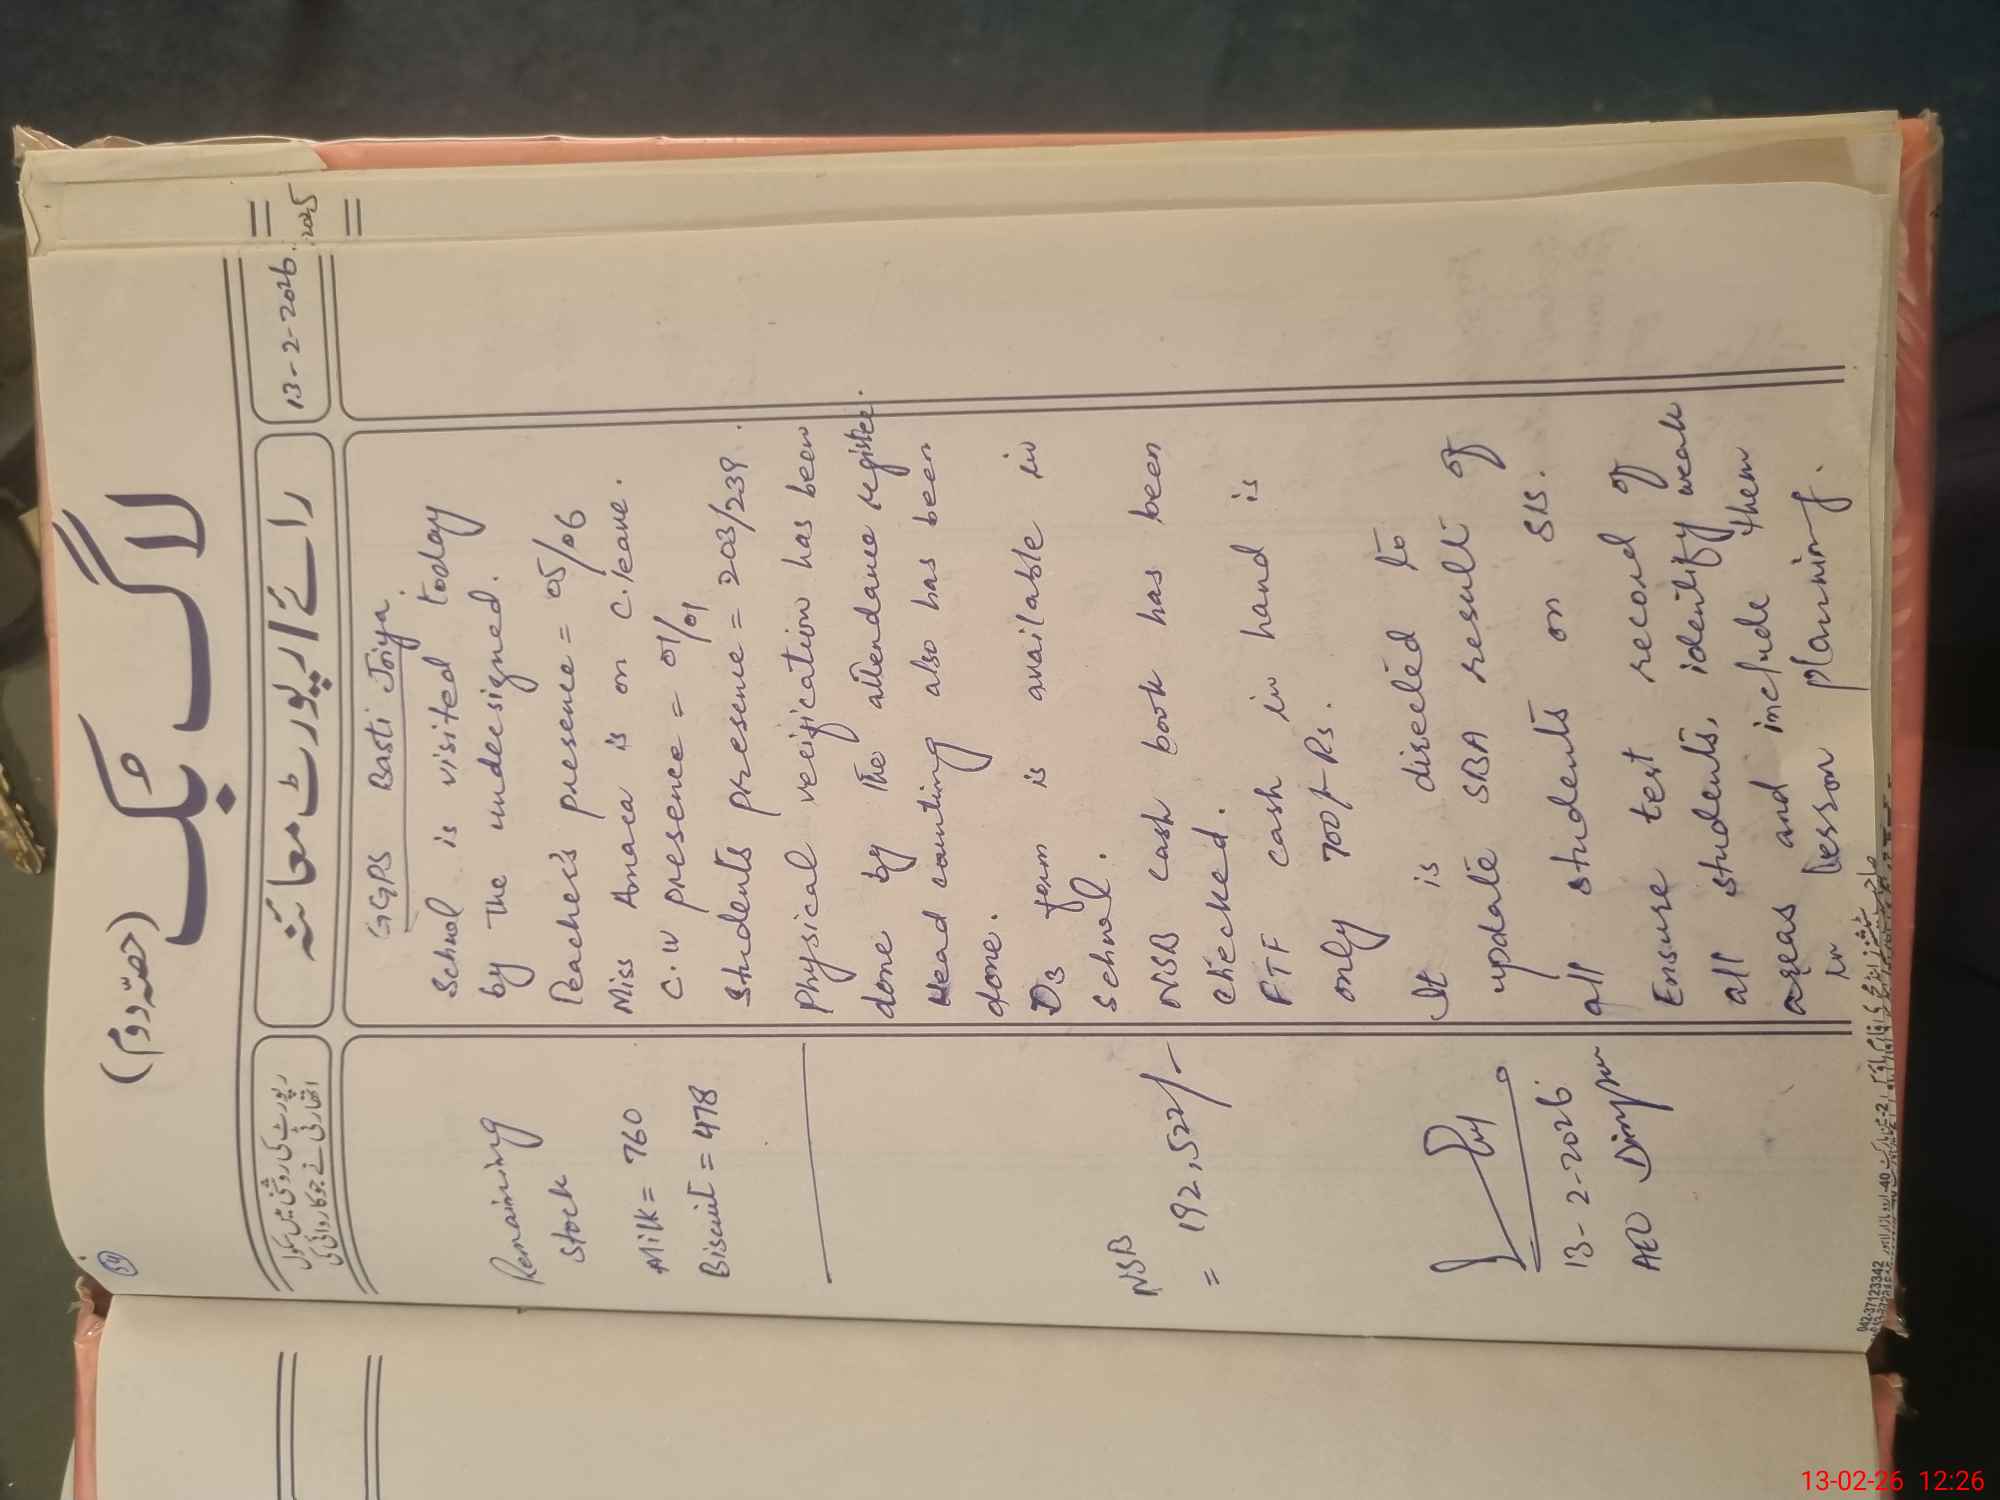 54
لاگ بک
(حصّہ دوم)
رپورٹ کی روشنی میں سکول
اتھارٹی نے جو کاروائی کی
رائے / رپورٹ معائنہ
13-2-2026.
2025
GGPS Basti Joiya.
School is visited today
by the undersigned.
Teacher's presence = 05/06
Miss Amara is on C.leave.
C.IV presence = 01/01
Students presence = 203/239.
Physical verification has been
done by the attendance register.
Head counting also has been
done.
D3 form is available in
school.
NSB cash book has been
checked.
FTF cash in hand is
only 700/- Rs.
It is directed to
update SBA result of
all students on SIS.
Ensure test record of
all students, identify weak
areas and include them
in lesson planning.
Remaining
stock
Milk = 760
Biscuit = 478
NSB
= 192,522/-
13-2-2026
AEO
042-37123342
13-02-26 12:26